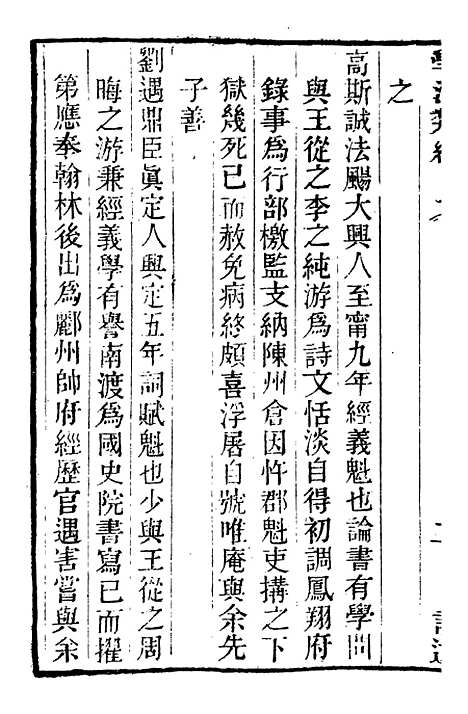 之
高斯誠法颺大興人至甯九年經義魁也論書有學問
與王從之李之純游爲詩文恬淡自得初調鳳翔府
錄事爲行部檄監支納陳州倉因忤郡魁吏搆之下
獄幾死已而赦免病終頗喜浮屠自號唯庵與余先
子善
劉遇鼎臣眞定人興定五年詞賦魁也少與王從之周
晦之游兼經義學有譽南渡爲國史院書寫已而擢
第應奉翰林後出爲鄜州帥府經歷官遇害嘗與余